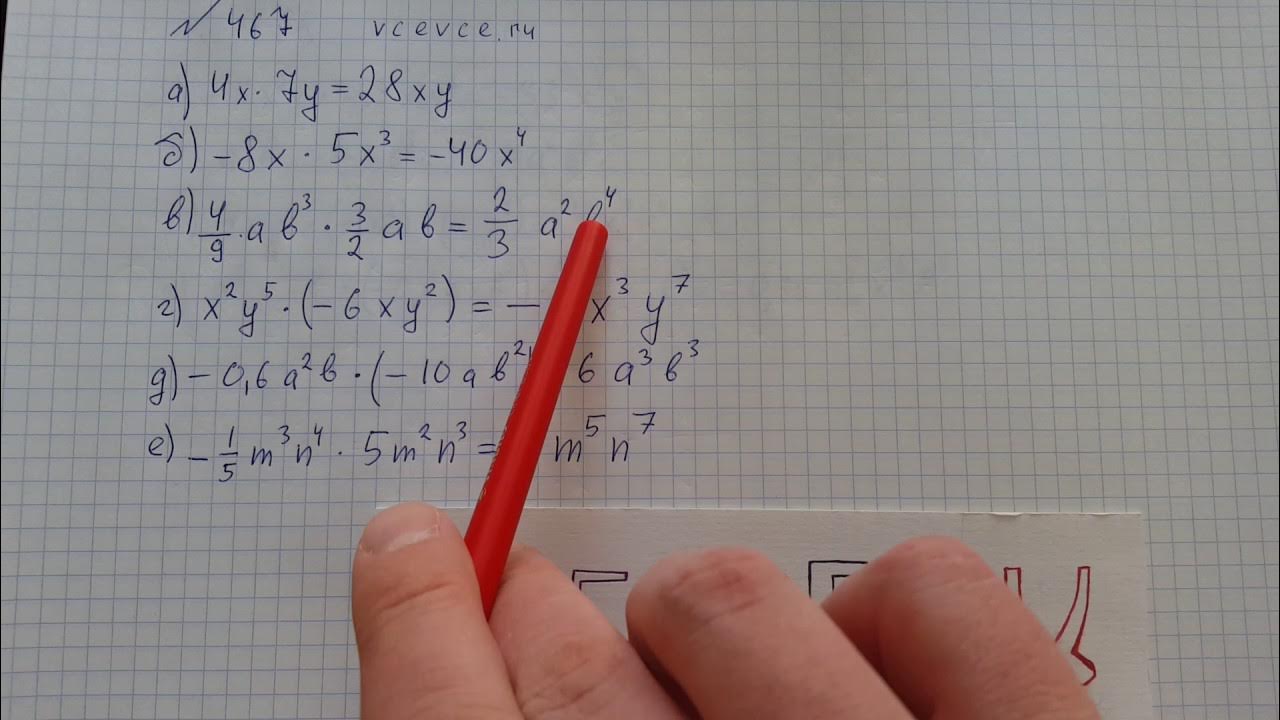 № 467 vcevce.ru
а) 4x · 7y = 28xy
б) -8x · 5x³ = -40x⁴
в) 4/9 · a b³ · 3/2 a b = 2/3 a²
г) x²y⁵ · (-6xy²) = — x³ y⁷
д) -0,6a²b · (-10ab² 6 a³b³
е) -1/5 m³n⁴ · 5m²n³ = m⁵n⁷